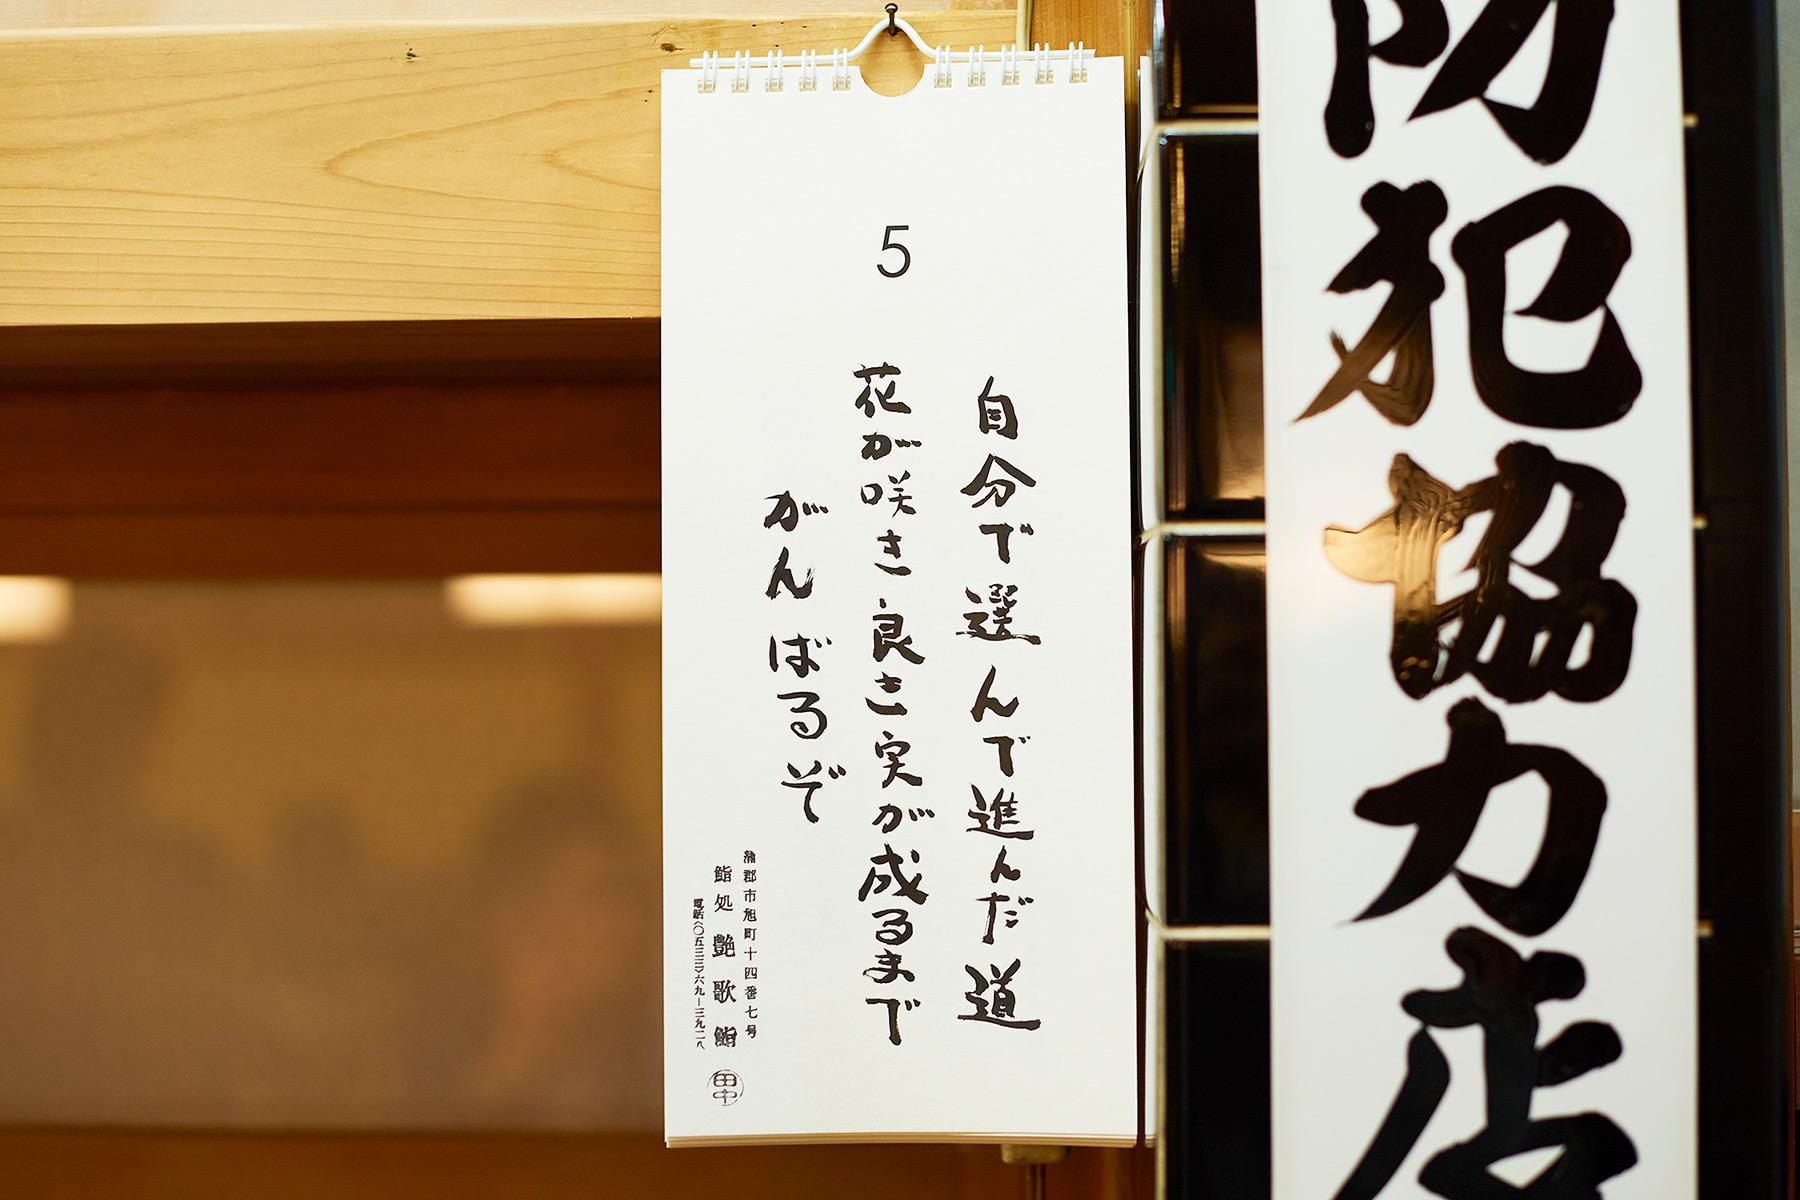 防犯協力店
5
自分で選んで進んだ道
花が咲き良き実が成るまで
がんばるぞ
蒲郡市旭町十四番七号
鮨処 艶歌鮨
電話(〇五三三)六九ー三九二八
田中